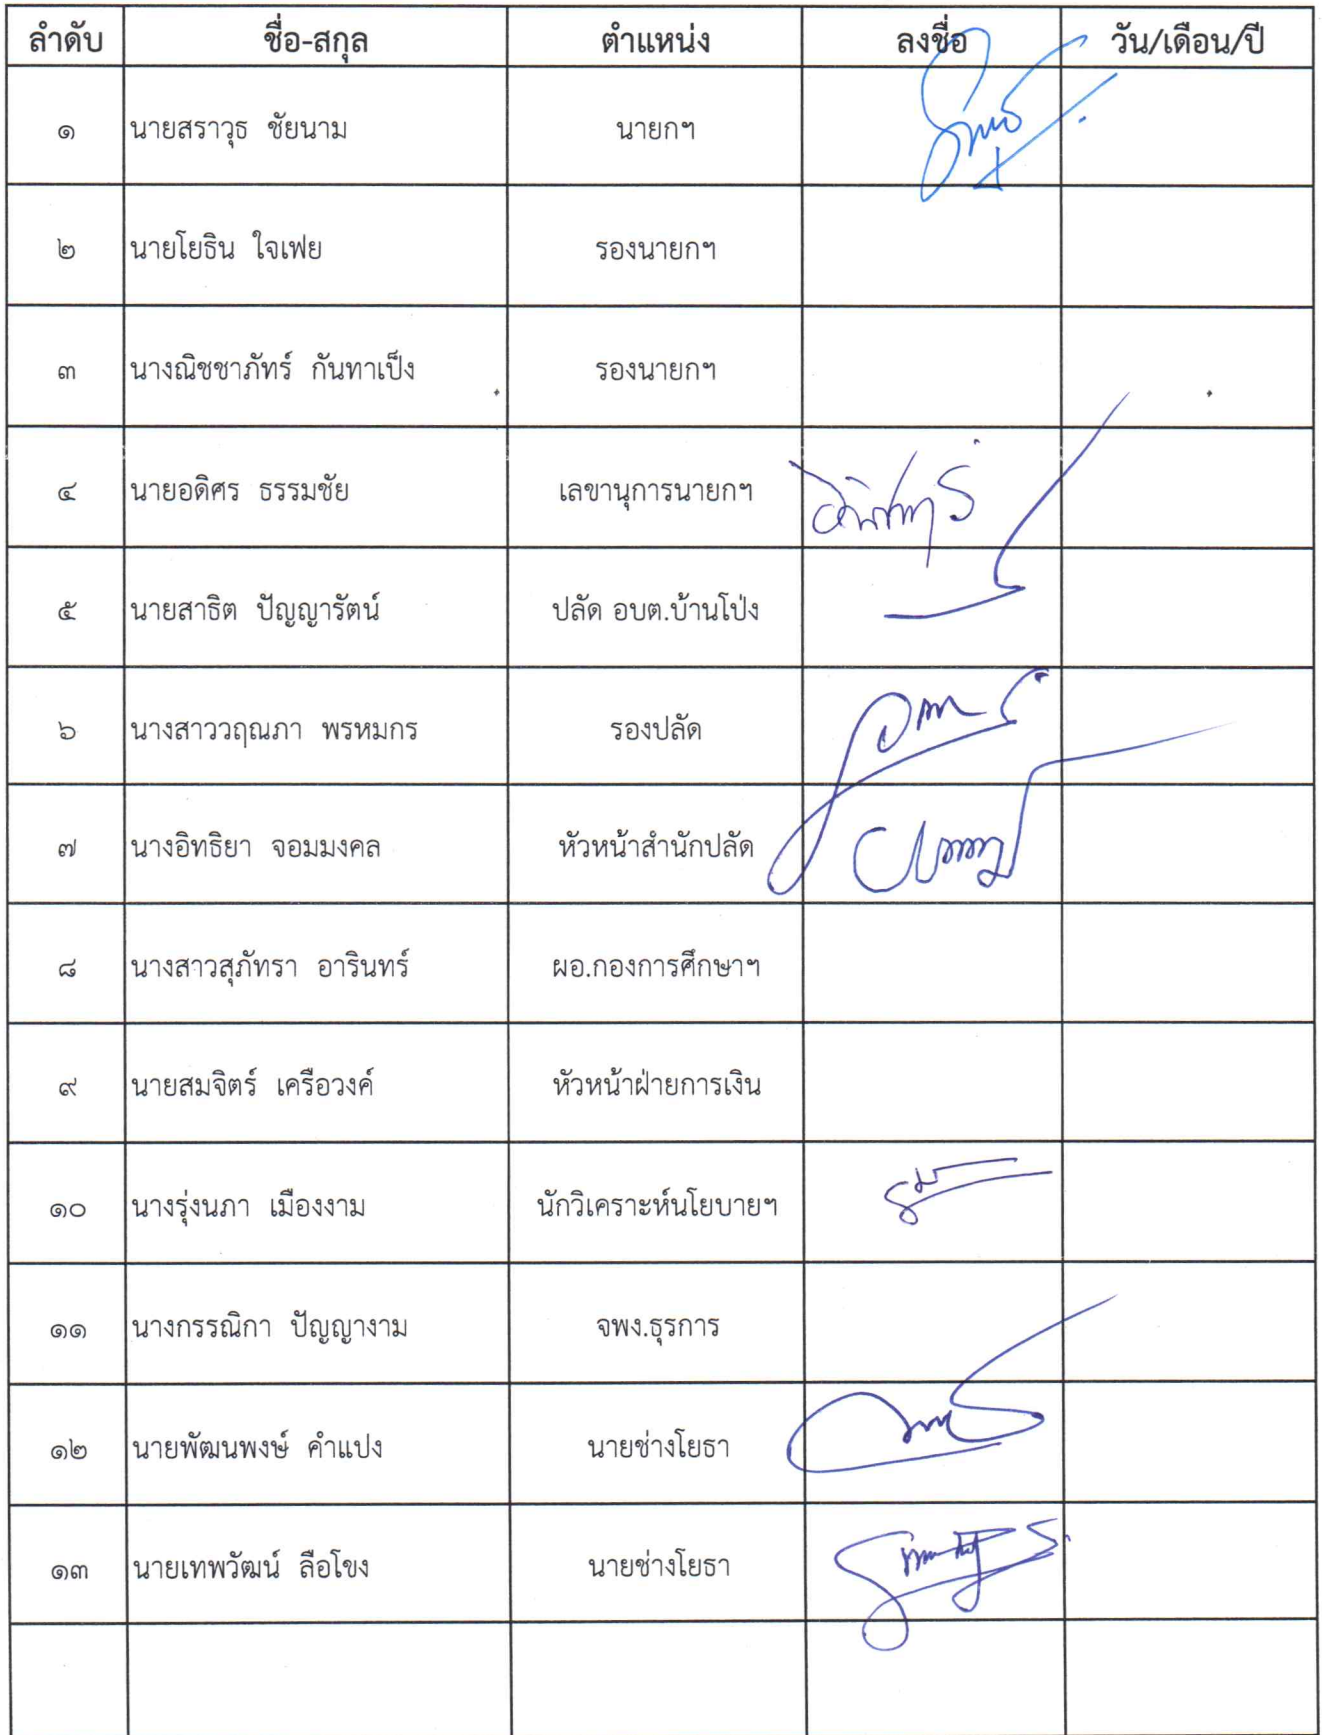 ลำดับ ชื่อ-สกุล ตำแหน่ง ลงชื่อ วัน/เดือน/ปี
๑ นายสราวุธ ชัยนาม นายกฯ
๒ นายโยธิน ใจเฟย รองนายกฯ
๓ นางณิชชาภัทร์ กันทาเป็ง รองนายกฯ
๔ นายอดิศร ธรรมชัย เลขานุการนายกฯ
๕ นายสาธิต ปัญญารัตน์ ปลัด อบต.บ้านโป่ง
๖ นางสาววฤณภา พรหมกร รองปลัด
๗ นางอิทธิยา จอมมงคล หัวหน้าสำนักปลัด
๘ นางสาวสุภัทรา อารินทร์ ผอ.กองการศึกษาฯ
๙ นายสมจิตร์ เครือวงค์ หัวหน้าฝ่ายการเงิน
๑๐ นางรุ่งนภา เมืองงาม นักวิเคราะห์นโยบายฯ
๑๑ นางกรรณิกา ปัญญางาม จพง.ธุรการ
๑๒ นายพัฒนพงษ์ คำแปง นายช่างโยธา
๑๓ นายเทพวัฒน์ ลือโขง นายช่างโยธา